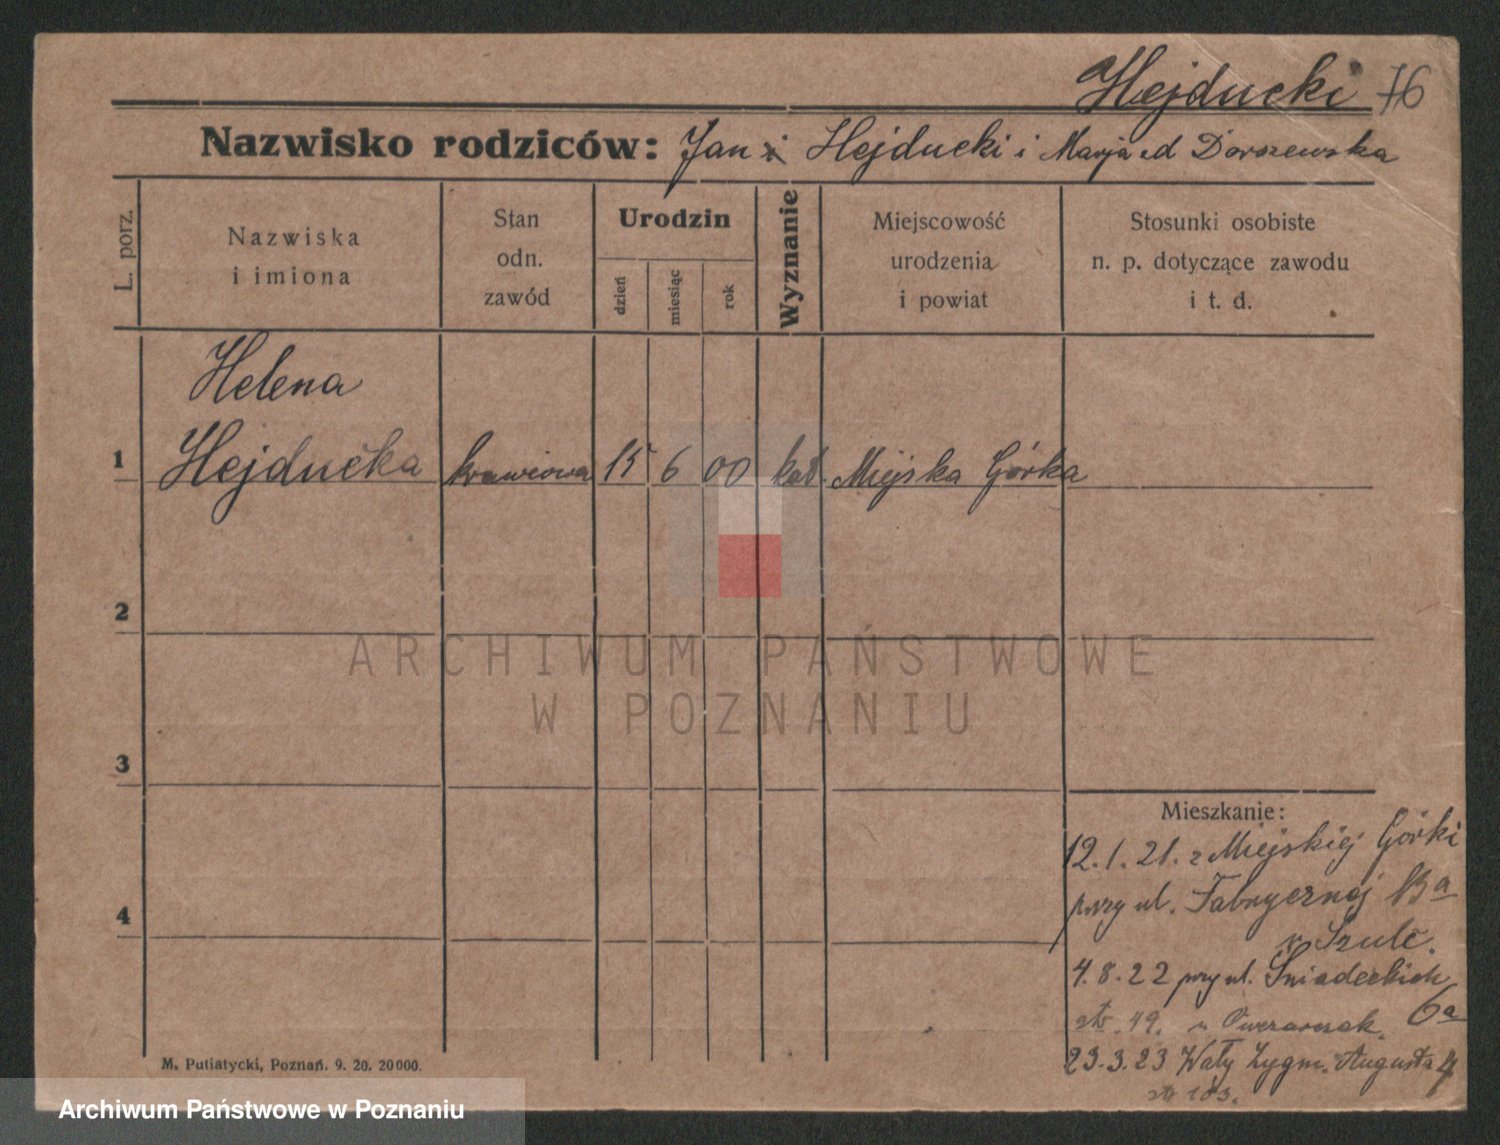 Hejducki 76
Nazwisko rodziców: Jan i Hejducki i Marja ed Dorszewska
L. porz.
Nazwiska
i imiona
Stan
odn.
zawód
Urodzin
dzień
miesiąc
rok
Wyznanie
Miejscowość
urodzenia
i powiat
Stosunki osobiste
n. p. dotyczące zawodu
i t. d.
Helena
1 Hejducka krawcowa 15 6 00 kat. Miejska Górka
2
ARCHIWUM PAŃSTWOWE
W POZNANIU
3
Mieszkanie:
12.1.21. z Miejskiej Górki
przy ul. Fabrycznej 13a
u Szulc.
4
4.8.22 przy ul. Śniadeckich
6a
str. 49. u Owczarczak.
23.3.23 Wały Zygm. Augusta 4
str 183.
M. Putiatycki, Poznań. 9. 20. 20000.
Archiwum Państwowe w Poznaniu